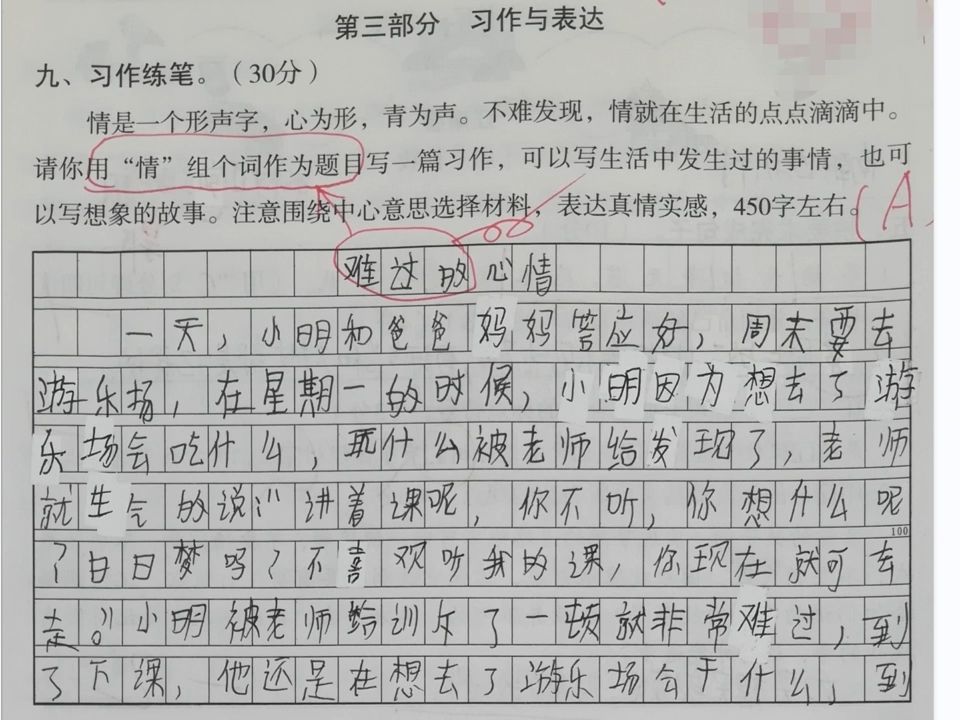 第三部分 习作与表达
九、习作练笔。（30分）
情是一个形声字，心为形，青为声。不难发现，情就在生活的点点滴滴中。
请你用“情”组个词作为题目写一篇习作，可以写生活中发生过的事情，也可
以写想象的故事。注意围绕中心意思选择材料，表达真情实感，450字左右。
(A
难过的心情
一天，小明和爸爸妈妈答应好，周末要去
游乐场，在星期一的时候，小明因为想去了游
乐场会吃什么，玩什么被老师给发现了，老师
就生气的说：“讲着课呢，你不听，你想什么呢
100
？白日梦吗？不喜欢听我的课，你现在就可去
走。”小明被老师给训斥了一顿就非常难过，到
了下课，他还是在想去了游乐场会干什么，到